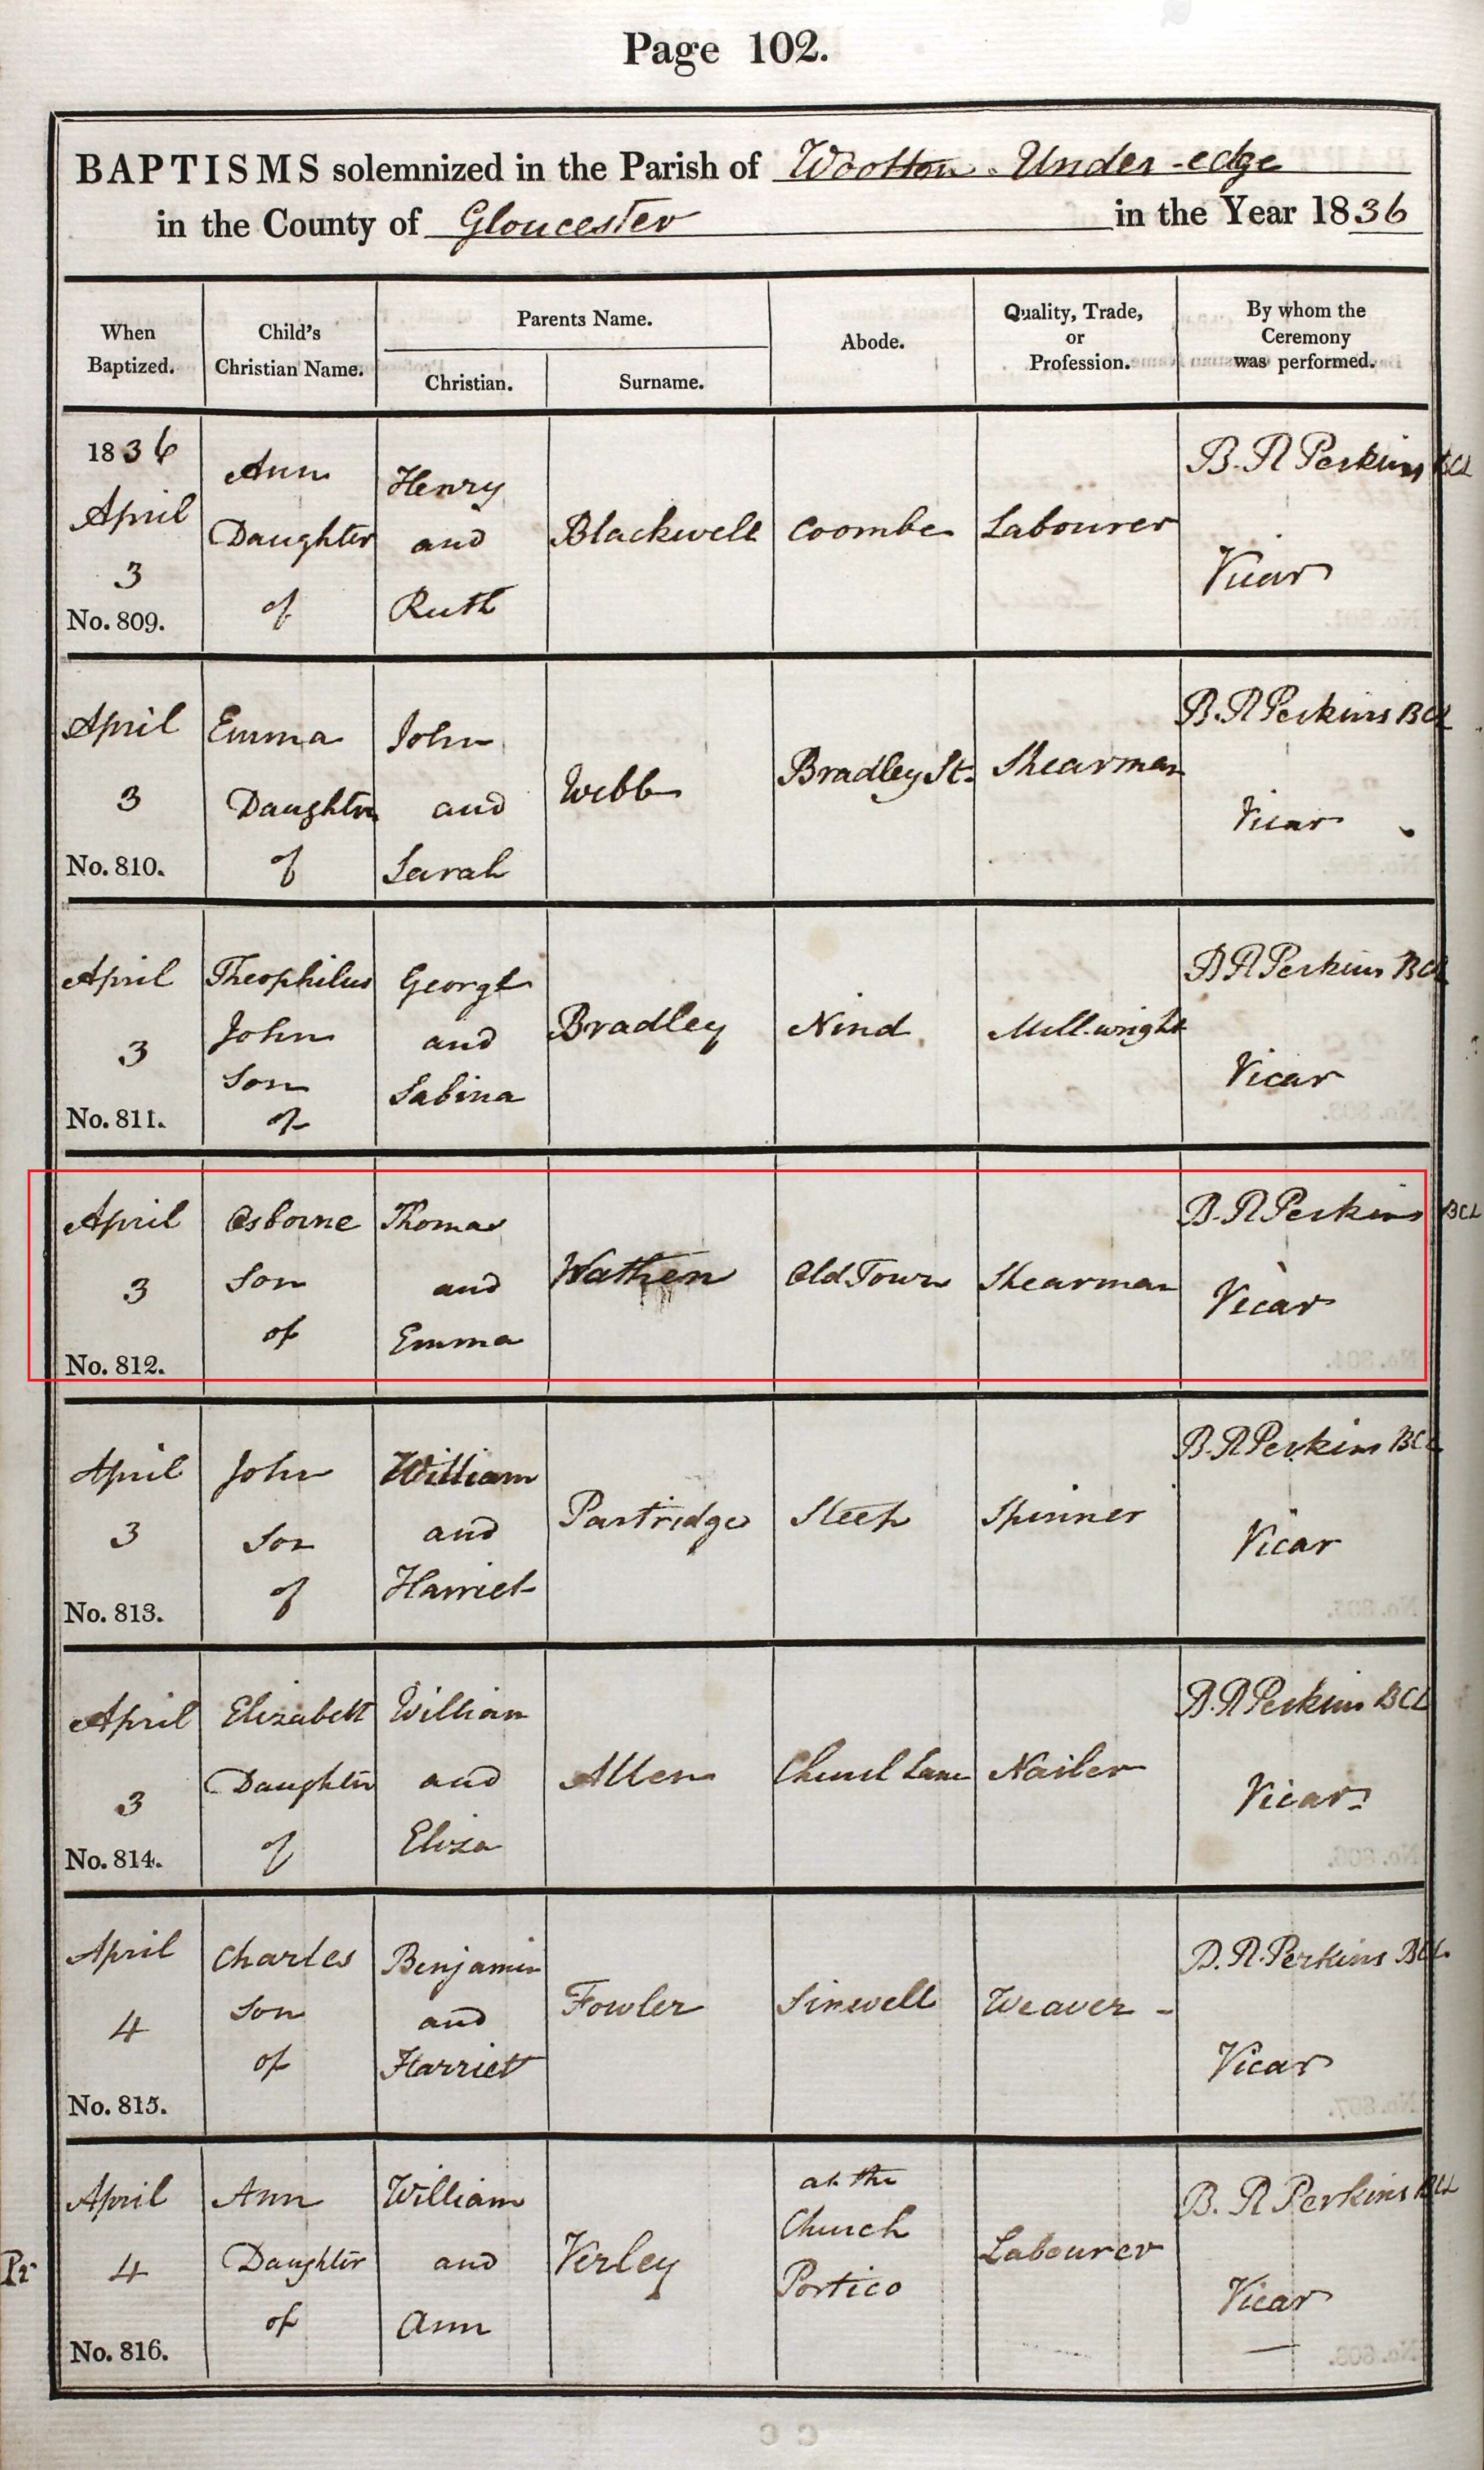 Page 102.
BAPTISMS solemnized in the Parish of Wootton-Under-edge
in the County of Gloucester in the Year 1836
When Baptized.
Child's Christian Name.
Parents Name.
Christian.
Surname.
Abode.
Quality, Trade, or Profession.
By whom the Ceremony was performed.
1836
April
3
No. 809.
Ann
Daughter
of
Henry
and
Ruth
Blackwell
Coombe
Labourer
B. R Perkins BCL
Vicar
April
3
No. 810.
Emma
Daughter
of
John
and
Sarah
Webb
Bradley St.
Shearman
B. R Perkins BCL
Vicar
April
3
No. 811.
Theophilus
John
Son
of
George
and
Sabina
Bradley
Nind
Mill-wright
B R Perkins BCL
Vicar
April
3
No. 812.
Osborne
Son
of
Thomas
and
Emma
Wathen
Old Town
Shearman
B. R Perkins BCL
Vicar
April
3
No. 813.
John
Son
of
William
and
Harriet
Partridge
Steep
Spinner
B. R Perkins BCL
Vicar
April
3
No. 814.
Elizabeth
Daughter
of
William
and
Eliza
Allen
Church Lane
Nailer
B. R Perkins BCL
Vicar
April
4
No. 815.
Charles
Son
of
Benjamin
and
Harriett
Fowler
Sinwell
Weaver -
B. R. Perkins BCL
Vicar
Pr
April
4
No. 816.
Ann
Daughter
of
William
and
Ann
Verley
at the
Church
Portico
Labourer
B. R Perkins BCL
Vicar